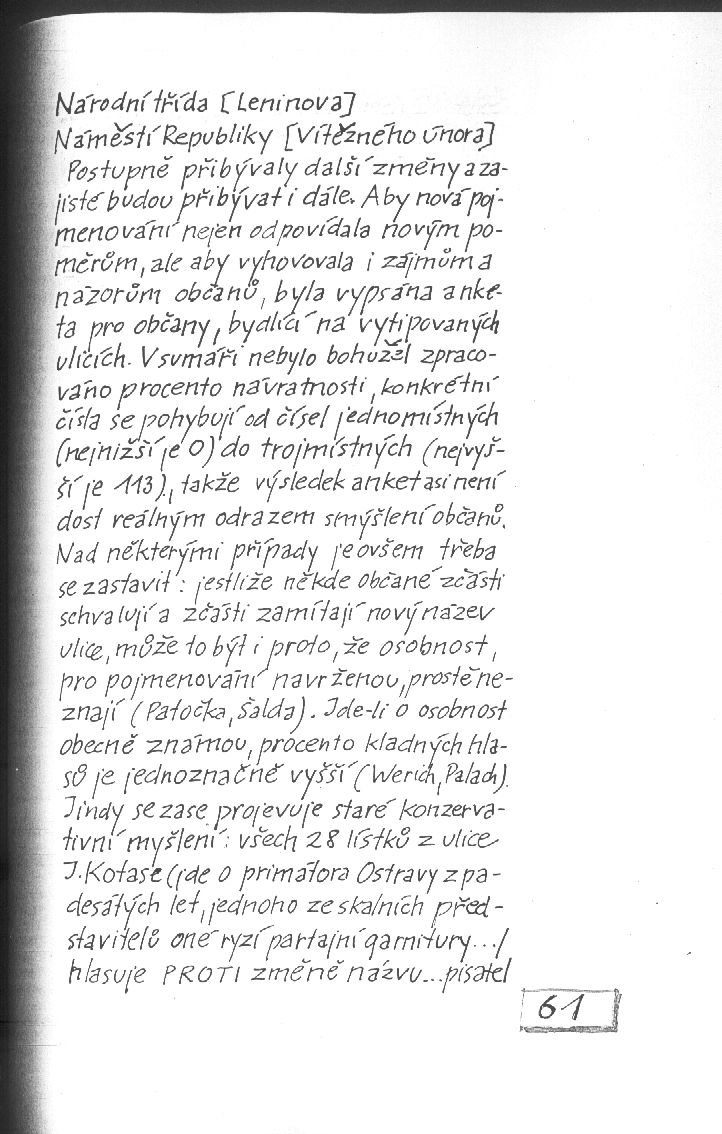 Národní třída [Leninova]
Náměstí Republiky [Vítězného února]
Postupně přibývaly další změny a za-
jisté budou přibývat i dále. Aby nová poj-
menování nejen odpovídala novým po-
měrům, ale aby vyhovovala i zájmům a
názorům občanů, byla vypsána anke-
ta pro občany, bydlící na vytipovaných
ulicích. V sumáři nebylo bohužel zpraco-
váno procento návratnosti, konkrétní
čísla se pohybují od čísel jednomístných
(nejnižší je 0) do trojmístných (nejvyš-
ší je 113), takže výsledek anket asi není
dost reálným odrazem smýšlení občanů.
Nad některými případy je ovšem třeba
se zastavit: jestliže někde občané zčásti
schvalují a zčásti zamítají nový název
ulice, může to být i proto, že osobnost,
pro pojmenování navrženou, prostě ne-
znají (Patočka, Šalda). Jde-li o osobnost
obecně známou, procento kladných hla-
sů je jednoznačně vyšší (Werich, Palach).
Jindy se zase projevuje staré konzerva-
tivní myšlení: všech 28 lístků z ulice
J. Kotase (jde o primátora Ostravy z pa-
desátých let, jednoho ze skalních před-
stavitelů oné ryzí partajní garnitury.../
hlasuje PROTI změně názvu...pisatel
61